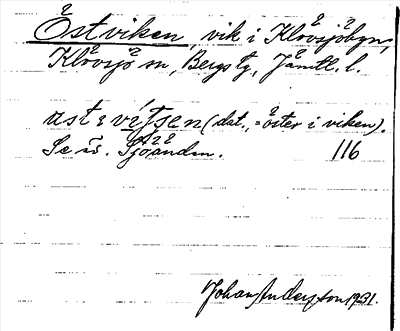 Östviken, vik i Klövsjöbyn,
Klövsjö sn, Bergs tg, Jämtl. l.
(dat., = öster i viken).
Se äv. Sjöänden. 116
Johan Andersson 1931.